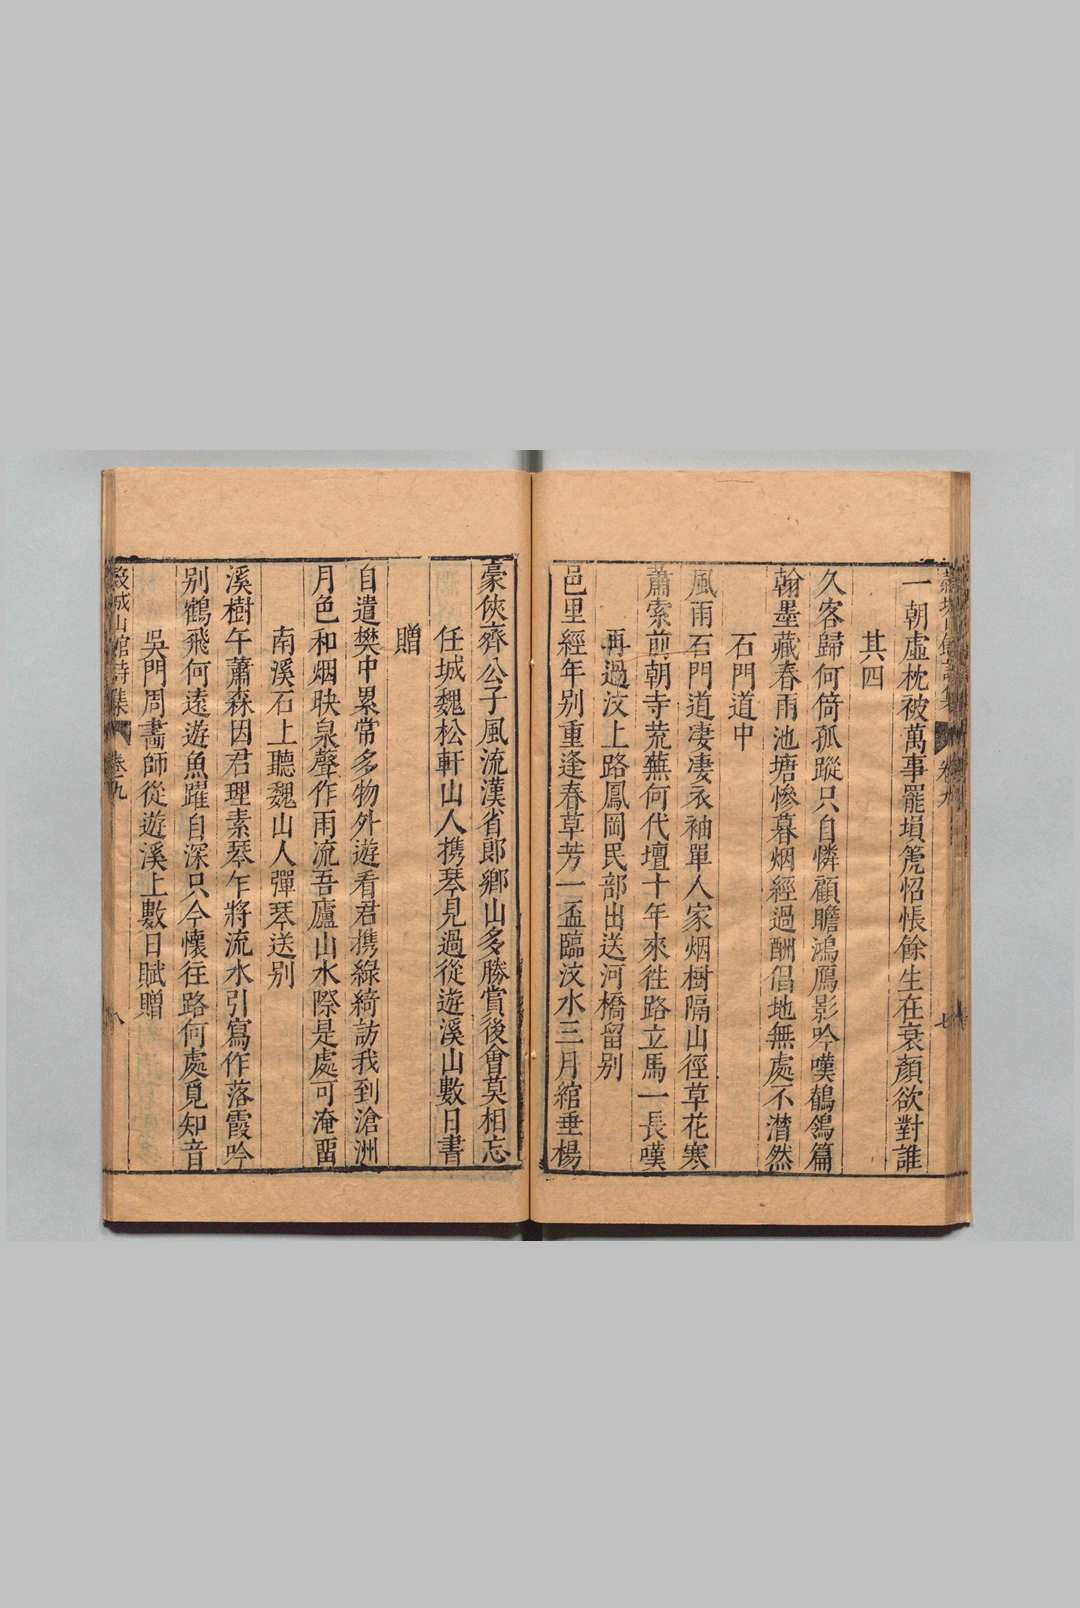 一朝虛枕被萬事罷塤箎怊悵餘生在衰顏欲對誰
其四
久客歸何倚孤蹤只自憐顧瞻鴻鴈影吟嘆鶺鴒篇
翰墨藏春雨池塘慘暮烟經過酬倡地無處不潸然
石門道中
風雨石門道凄凄衣袖單人家烟樹隔山徑草花寒
蕭索前朝寺荒蕪何代壇十年來徃路立馬一長嘆
再過汶上路鳳岡民部出送河橋留别
邑里經年别重逢春草芳一盃臨汶水三月綰垂楊
豪俠齊公子風流漢省郎鄉山多勝賞後會莫相忘
任城魏松軒山人携琴見過從遊溪山數日書
贈
自遣樊中累常多物外遊看君携綠綺訪我到滄洲
月色和烟映泉聲作雨流吾廬山水際是處可淹畱
南溪石上聽魏山人彈琴送别
溪樹午蕭森因君理素琴乍將流水引寫作落霞吟
别鶴飛何遠遊魚躍自深只今懷往路何處覓知音
吳門周畵師從遊溪上數日賦贈
城山館詩集 卷九 八